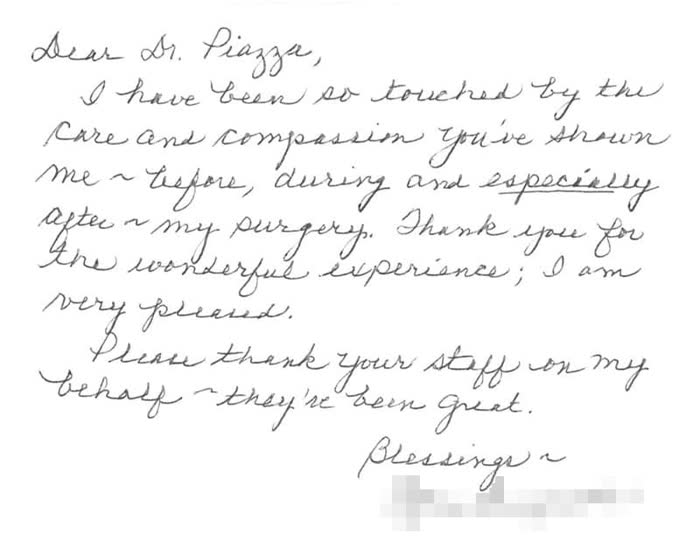 Dear Dr. Piazza,
I have been so touched by the
care and compassion you've shown
me ~ before, during and especially
after ~ my surgery. Thank you for
the wonderful experience; I am
very pleased.
Please thank your staff on my
behalf ~ they're been great.
Blessings ~